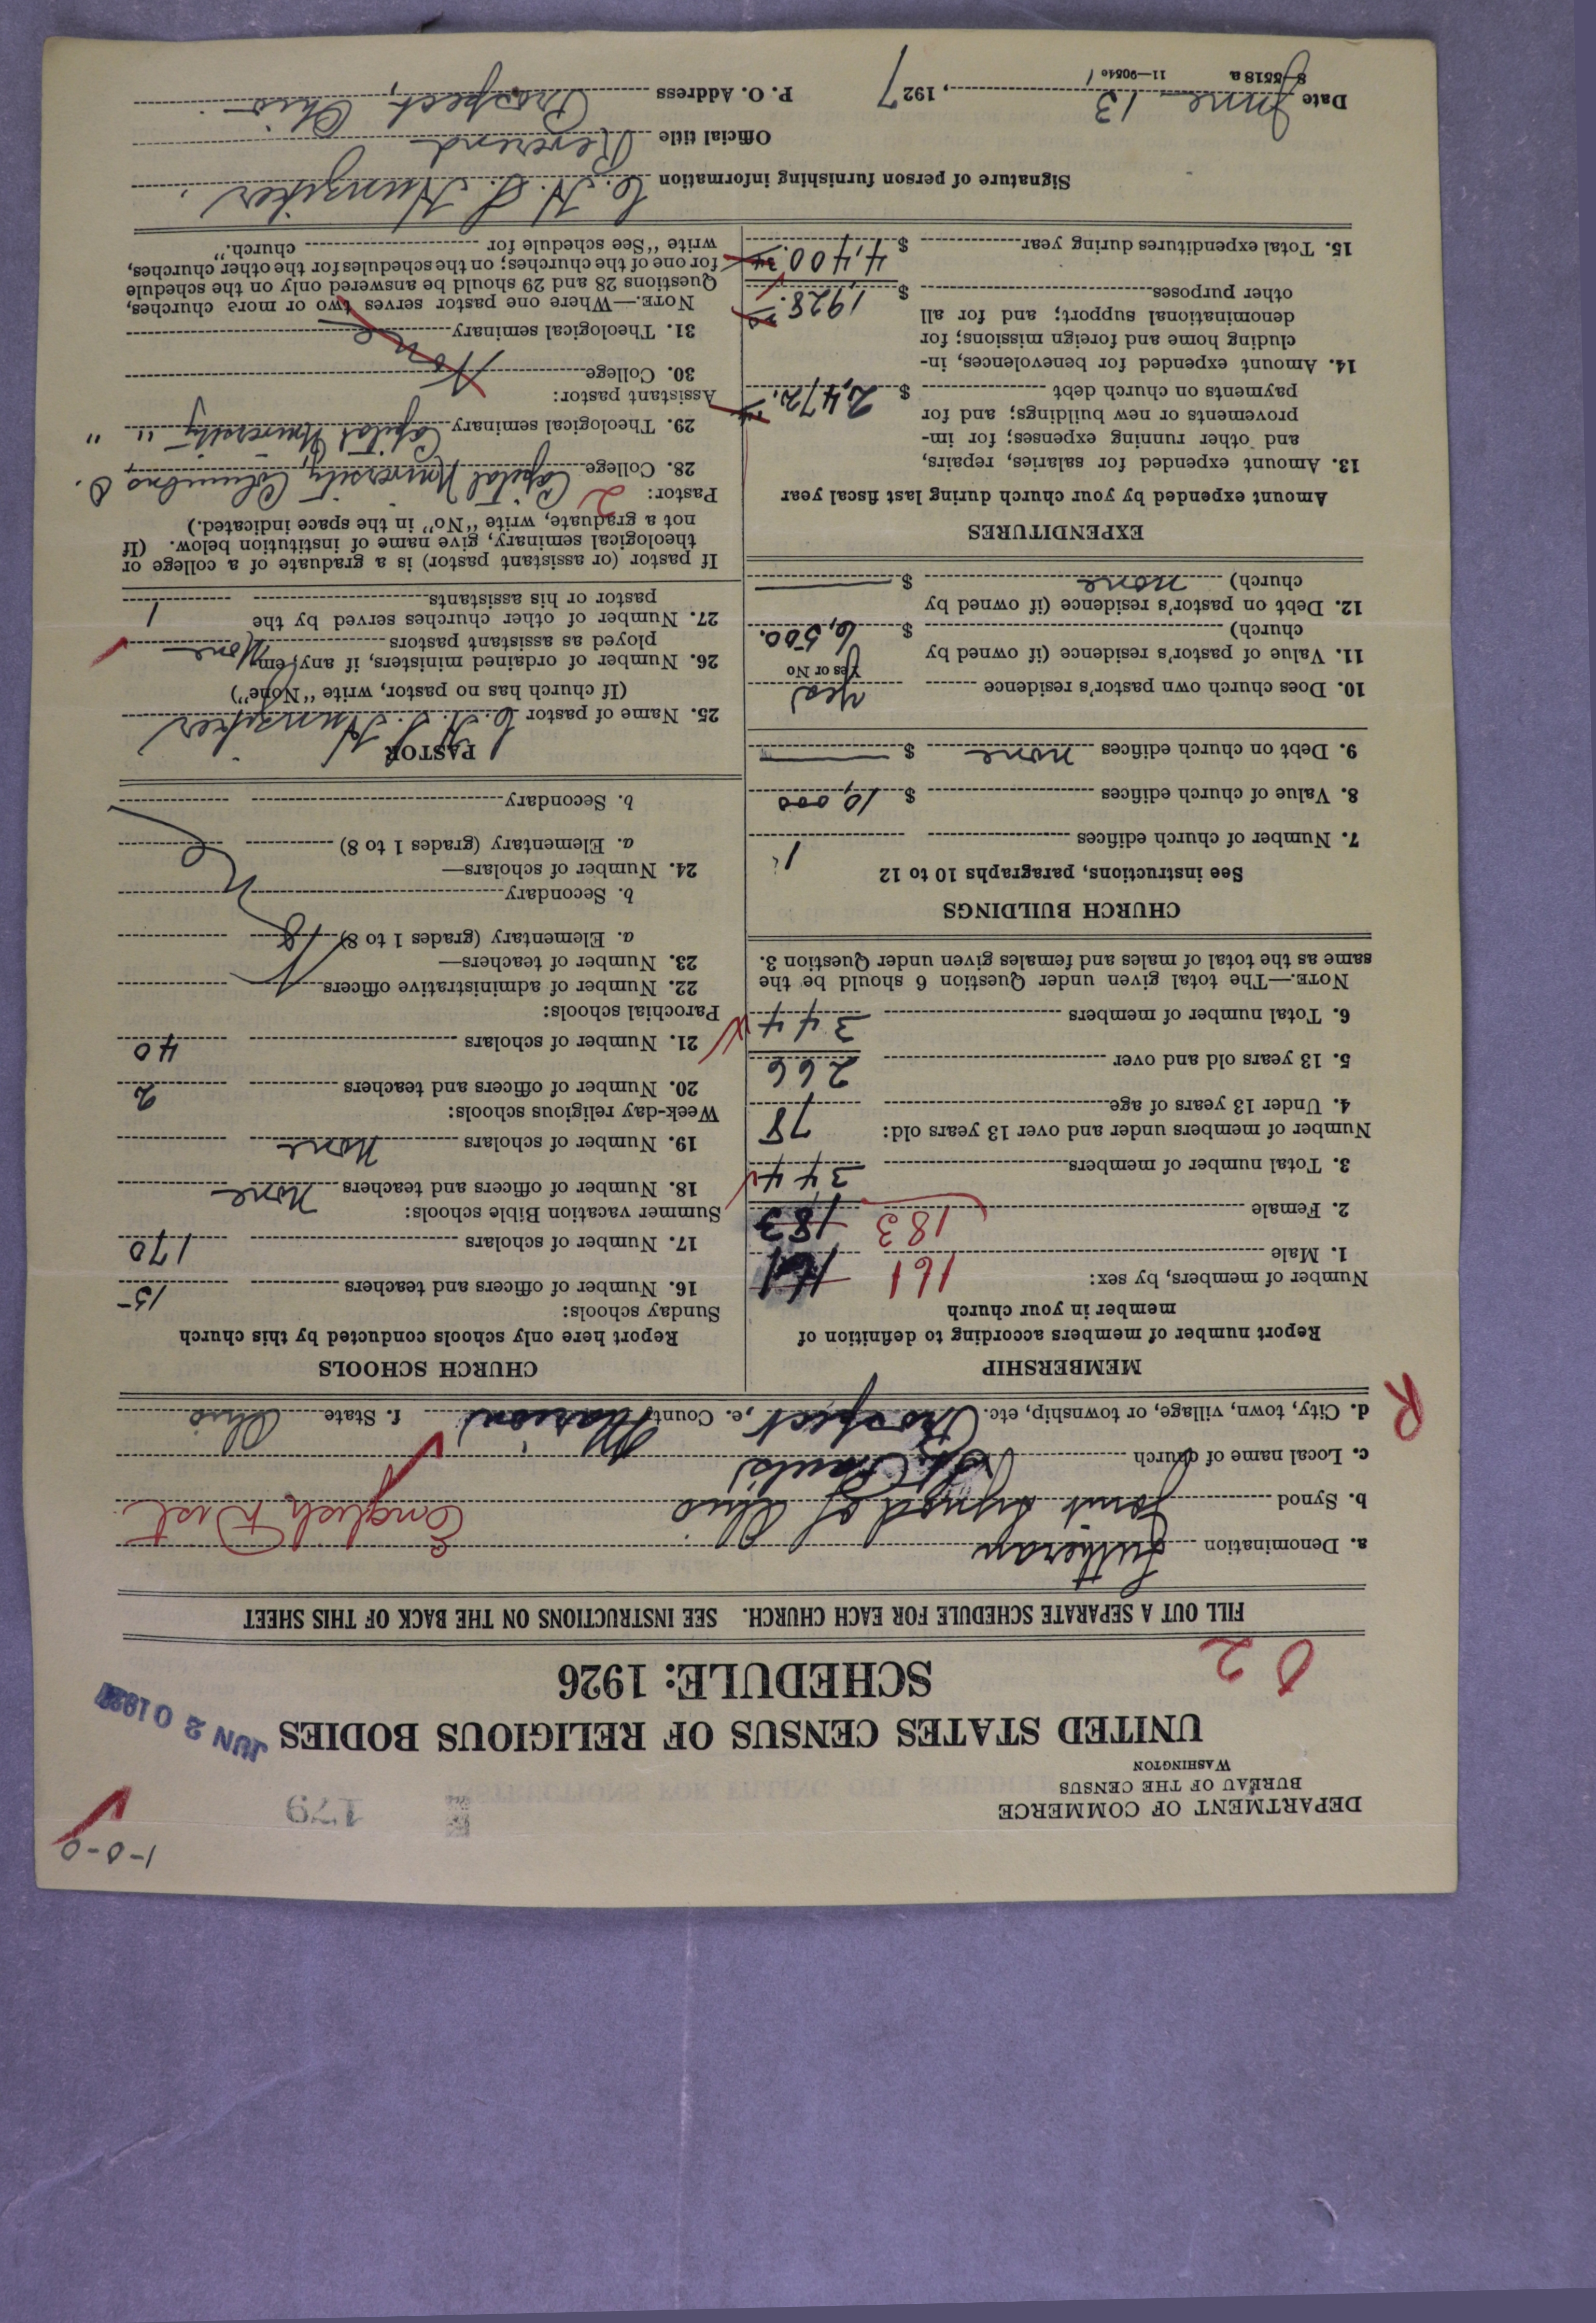 1-0-0
179
DEPARTMENT OF COMMERCE
BUREAU OF THE CENSUS
WASHINGTON
UNITED STATES CENSUS OF RELIGIOUS BODIES
JUN 20 1927
SCHEDULE: 1926
02
FILL OUT A SEPARATE SCHEDULE FOR EACH CHURCH. SEE INSTRUCTIONS ON THE BACK OF THIS SHEET
a. Denomination Lutheran
b. Synod Joint Synod of Ohio English Dist
c. Local name of church St. Paul's
d. City, town, village, or township, etc. Prospect, e. County Marion f. State Ohio
R
MEMBERSHIP
Report number of members according to definition of
member in your church
Number of members, by sex:
1. Male 161 161
2. Female 183 183
3. Total number of members 344
Number of members under and over 13 years old:
4. Under 13 years of age 78
5. 13 years old and over 266
6. Total number of members 344
NOTE.—The total given under Question 6 should be the
same as the total of males and females given under Question 3.
CHURCH BUILDINGS
See instructions, paragraphs 10 to 12
7. Number of church edifices 1
8. Value of church edifices $ 10,000
9. Debt on church edifices none $
10. Does church own pastor's residence Yes
Yes or No
11. Value of pastor's residence (if owned by
church) $ 6,500.
12. Debt on pastor's residence (if owned by
church) none $
EXPENDITURES
Amount expended by your church during last fiscal year
13. Amount expended for salaries, repairs,
and other running expenses; for im-
provements or new buildings; and for
payments on church debt $ 2,472.
14. Amount expended for benevolences, in-
cluding home and foreign missions; for
denominational support; and for all
other purposes $ 1,928.
15. Total expenditures during year $ 4,400.
CHURCH SCHOOLS
Report here only schools conducted by this church
Sunday schools:
16. Number of officers and teachers 15
17. Number of scholars 170
Summer vacation Bible schools:
18. Number of officers and teachers none
19. Number of scholars none
Week-day religious schools:
20. Number of officers and teachers 2
21. Number of scholars 40
Parochial schools:
22. Number of administrative officers
23. Number of teachers—
a. Elementary (grades 1 to 8)
b. Secondary
24. Number of scholars—
a. Elementary (grades 1 to 8)
b. Secondary
PASTOR
25. Name of pastor C. H. S. Hunziker
(If church has no pastor, write "None")
26. Number of ordained ministers, if any, em-
ployed as assistant pastors None
27. Number of other churches served by the
pastor or his assistants 1
If pastor (or assistant pastor) is a graduate of a college or
theological seminary, give name of institution below. (If
not a graduate, write "No" in the space indicated.)
Pastor: 2
28. College Capital University, Columbus O.
29. Theological seminary Capital University " "
Assistant pastor:
30. College None
31. Theological seminary
NOTE.—Where one pastor serves two or more churches,
Questions 28 and 29 should be answered only on the schedule
for one of the churches; on the schedules for the other churches,
write "See schedule for church."
Signature of person furnishing information C. H. S. Hunziker
Official title Reverend
Date June 13, 1927 P. O. Address Prospect, Ohio
8-5518a 11-9054c